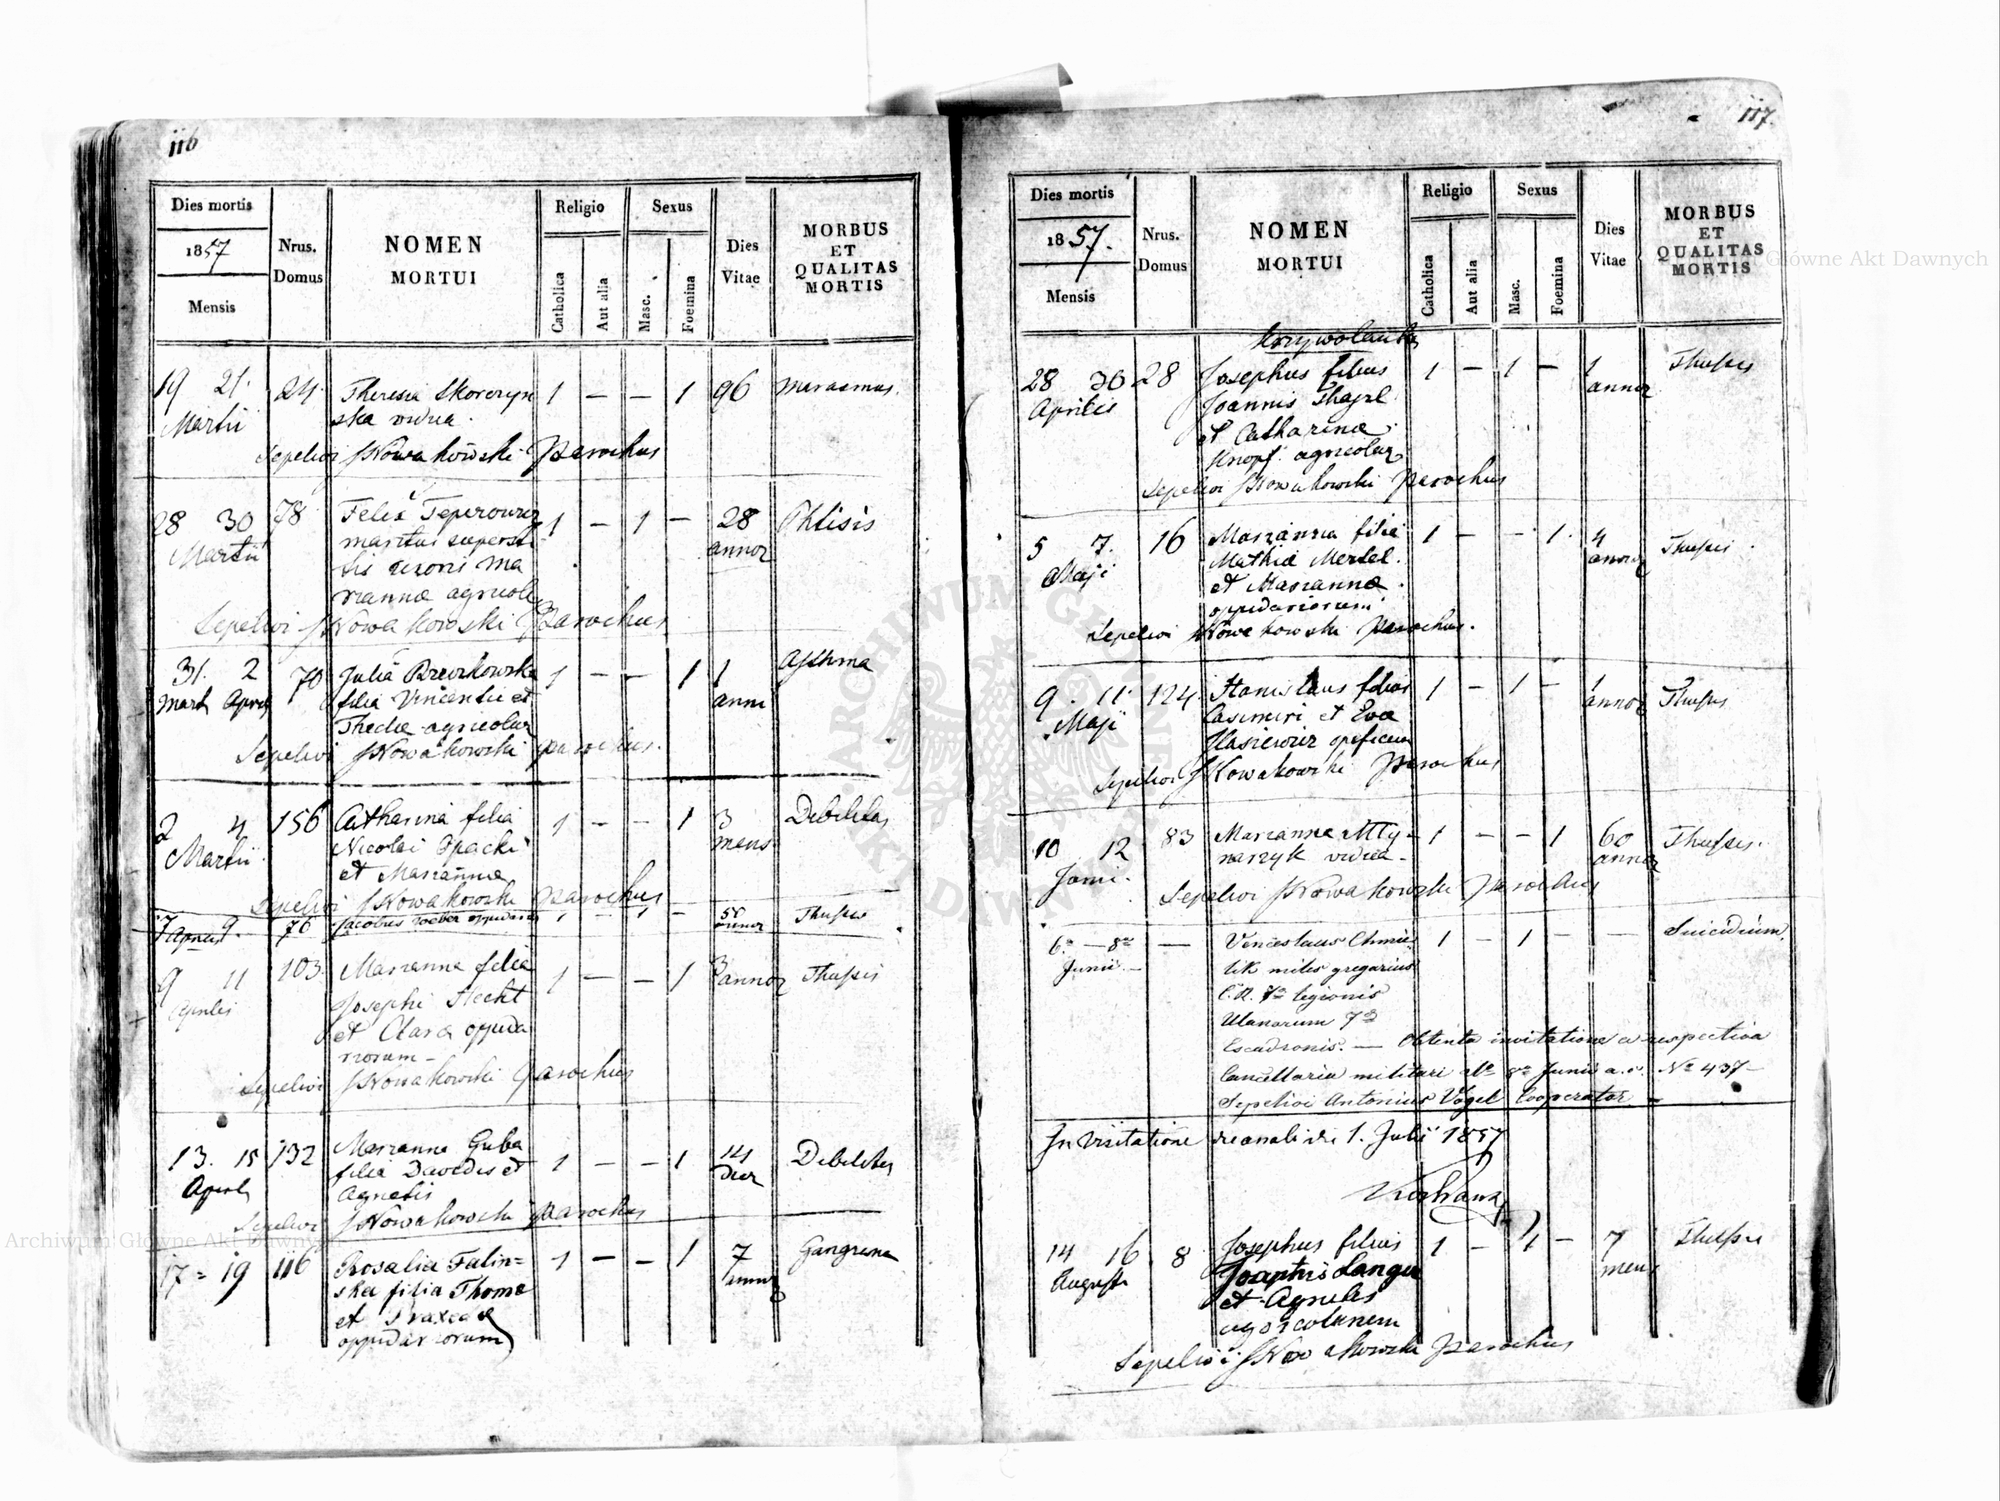 116
Dies mortis
1857
Mensis
Nrus.
Domus
NOMEN
MORTUI
Religio
Catholica
Aut alia
Sexus
Masc.
Foemina
Dies
Vitae
MORBUS
ET
QUALITAS
MORTIS
19 21. 24 Theresia Skorczyn 1 – – 1 96 Marasmus.
Martii ska vidua.
Sepelivi Nowakowski Parochus
28 30 78 Felix 1 – 1 – 28 Phtisis
Martii maritus supersti annor
tis uxoris Ma
riannae agricola
Sepelivi Nowakowski Parochus
31. 2 70 Julia 1 – – 1 1 Asthma
Mart Aprilis filia Vincentii et anni
Theclae agricolar
Sepelivi Nowakowski parochus.
2 4 156 Catharina filia 1 – – 1 3 Debilitas
Martii Nicolai Opacki mens
et Marianna
Sepelivi Nowakowski parochus
7 9. 76 Jacobus 1 – 1 – 50
Aprilis annor
9 11 103 Marianna filia 1 – – 1 3 annor
Aprilis Josephi Hecht
et Clara oppida
riorum –
Sepelivi Nowakowski parochus
13. 15 132 Marianna Guba 1 – – 1 14 Debilitas
Aprilis filia Davidis et dier
Agnetis
Sepelivi Nowakowski parochus
17 = 19 116 Rosalia Falin= 1 – – 1 7 Gangrena
ska filia Thoma annor
et Praxeda
oppidariorum
117.
Dies mortis
1857.
Mensis
Nrus.
Domus
NOMEN
MORTUI
Religio
Catholica
Aut alia
Sexus
Masc.
Foemina
Dies
Vitae
MORBUS
ET
QUALITAS
MORTIS
28 30 28 Josephus filius 1 – 1 – 1
Aprilis Joannis annor
et Catharina
Knopf agricolar
Sepelivi Nowakowski parochus
5 7. 16 Marianna filia 1 – – 1. 4
Maji Mathia Mertel annor
et Marianna
oppidariorum
Sepelivi Nowakowski parochus.
9. 11. 124 Stanislaus filius 1 – 1 – 1
Maji Casimiri et Eva annor
opificum
Sepelivi Nowakowski parochus
10 12 83 Marianna Mły- 1 – – 1 60
narzyk vidua – annor
Sepelivi Nowakowski parochus
6a — 8va — Venceslaus Chmie 1 – 1 – — Suicidium.
Junii. – lik miles gregarius
C.R. 7a legionis
Ulanorum 7a
Escadronis. — Obtenta invitatione a respectiva
Cancellaria militari dto 8a Junii a.c. No 437 –
Sepelivi Antonius Vogel Cooperator –
In visitatione decanali die 1. Julii 1857
14 16 8 Josephus filius 1 – 1 – 7
Augusti Josephi Langer mens
et Agnetis
agricolarum
Sepelivi Nowakowski parochus
ARCHIWUM GŁÓWNE AKT DAWNYCH
Archiwum Główne Akt Dawnych
Główne Akt Dawnych